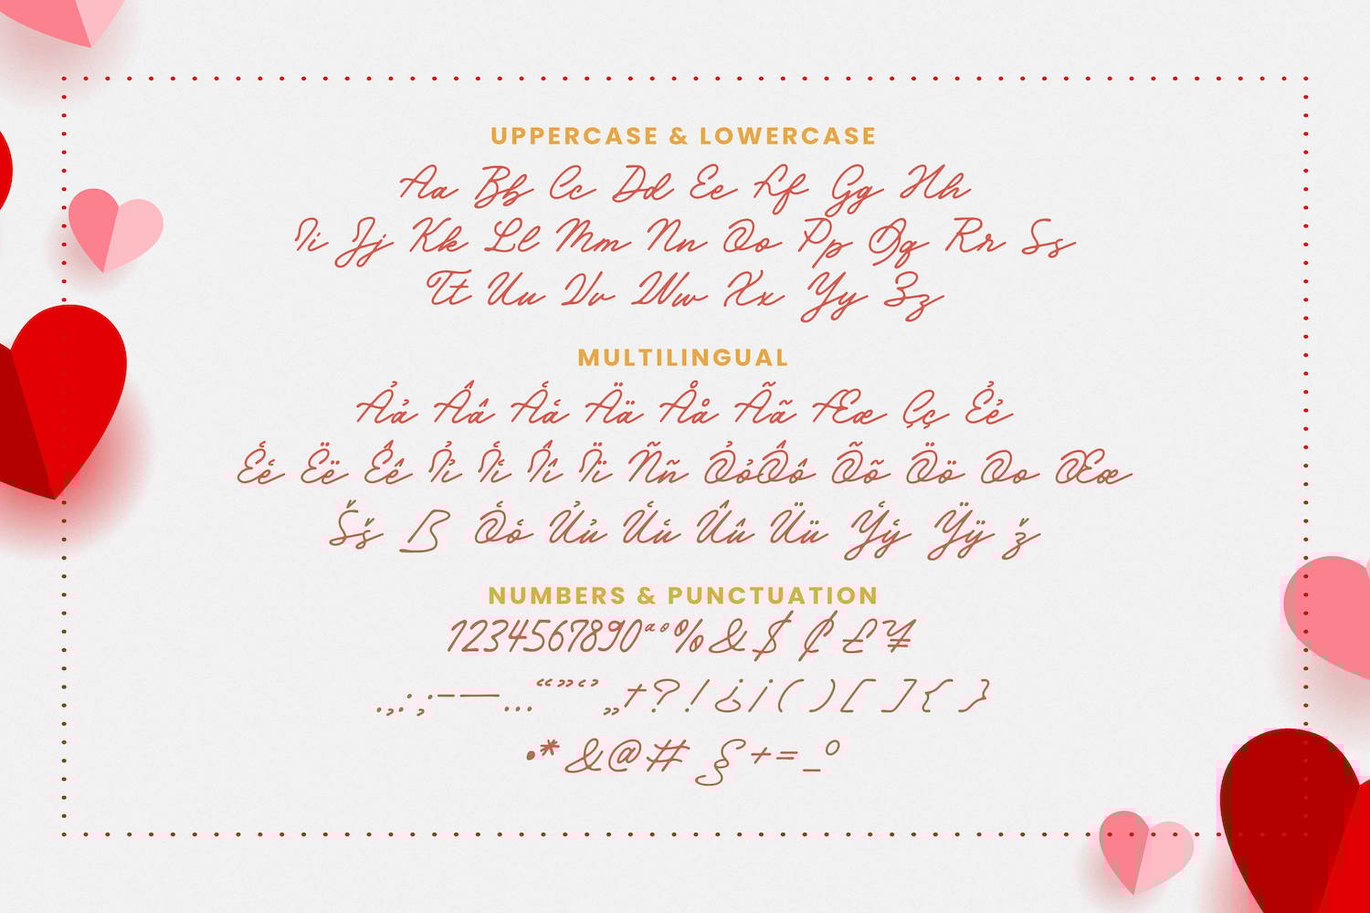 UPPERCASE & LOWERCASE
Aa Bb Cc Dd Ee Ff Gg Hh
Ii Jj Kk Ll Mm Nn Oo Pp Qq Rr Ss
Tt Uu Vv Ww Xx Yy Zz
MULTILINGUAL
Àà Ââ Áá Ää Åå Ãã Ææ Çç Èè
Éé Ëë Êê Ìì Íí Îî Ïï Ññ ÒòÔô Õõ Öö Oo Œœ
Šš ß Óó Ùù Úú Ûû Üü Ýý Ÿÿ ž
NUMBERS & PUNCTUATION
1234567890ªº%&$ ¢ £¥
.,:;-—...“”‘’„†?!¿¡( )[ ]{ }
•*&@# §+=_°